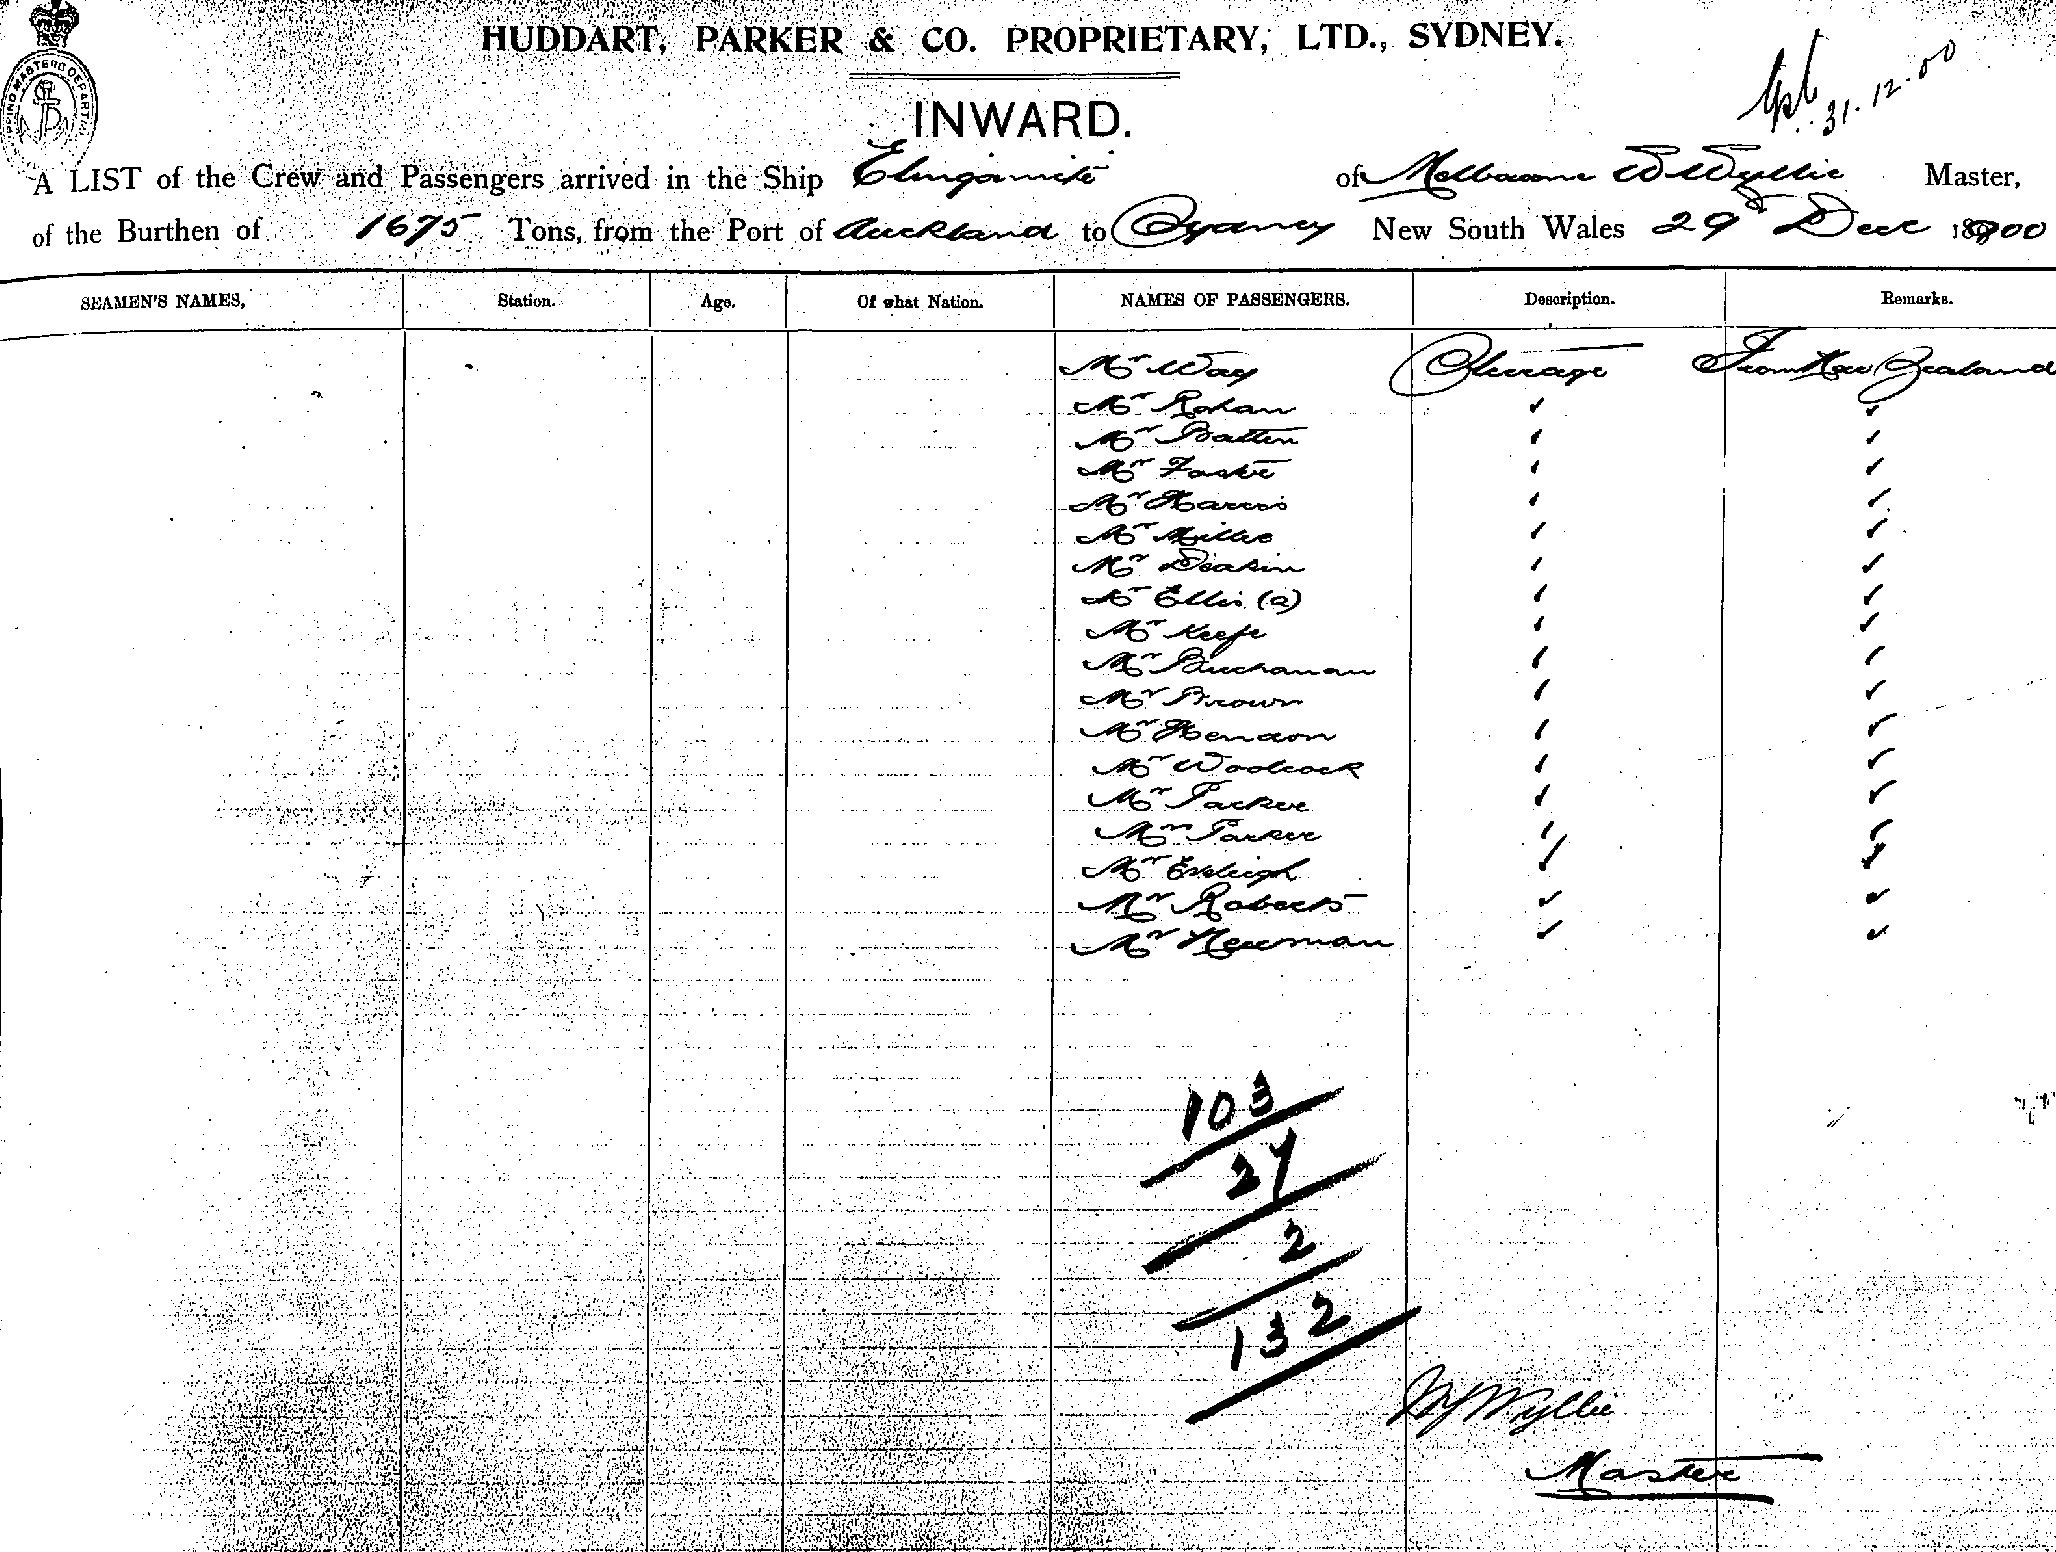 HUDDART, PARKER & CO. PROPRIETARY, LTD., SYDNEY.
31.12.00
INWARD.
A LIST of the Crew and Passengers arrived in the Ship Elingamite of Melbourne W Wyllie Master,
of the Burthen of 1675 Tons, from the Port of Auckland to Sydney New South Wales 29th Dec 1900
SEAMEN'S NAMES, Station. Age. Of what Nation. NAMES OF PASSENGERS. Description. Remarks.
Mr Way Steerage From New Zealand
Mr Rohan ✓ ✓
Mr Batten ✓ ✓
Mr Foster ✓ ✓
Mr Harris ✓ ✓
Mr Miller ✓ ✓
Mr Deakin ✓ ✓
Mr Ellis (a) ✓ ✓
Mr Keefe ✓ ✓
Mr Buchanan ✓ ✓
Mr Brown ✓ ✓
Mr Hendon ✓ ✓
Mr Woolcock ✓ ✓
Mr Parker ✓ ✓
Mrs Parker ✓ ✓
Mr ✓ ✓
Mr Roberts ✓ ✓
Mr Newman ✓ ✓
103
27
2
132
Wyllie
Master